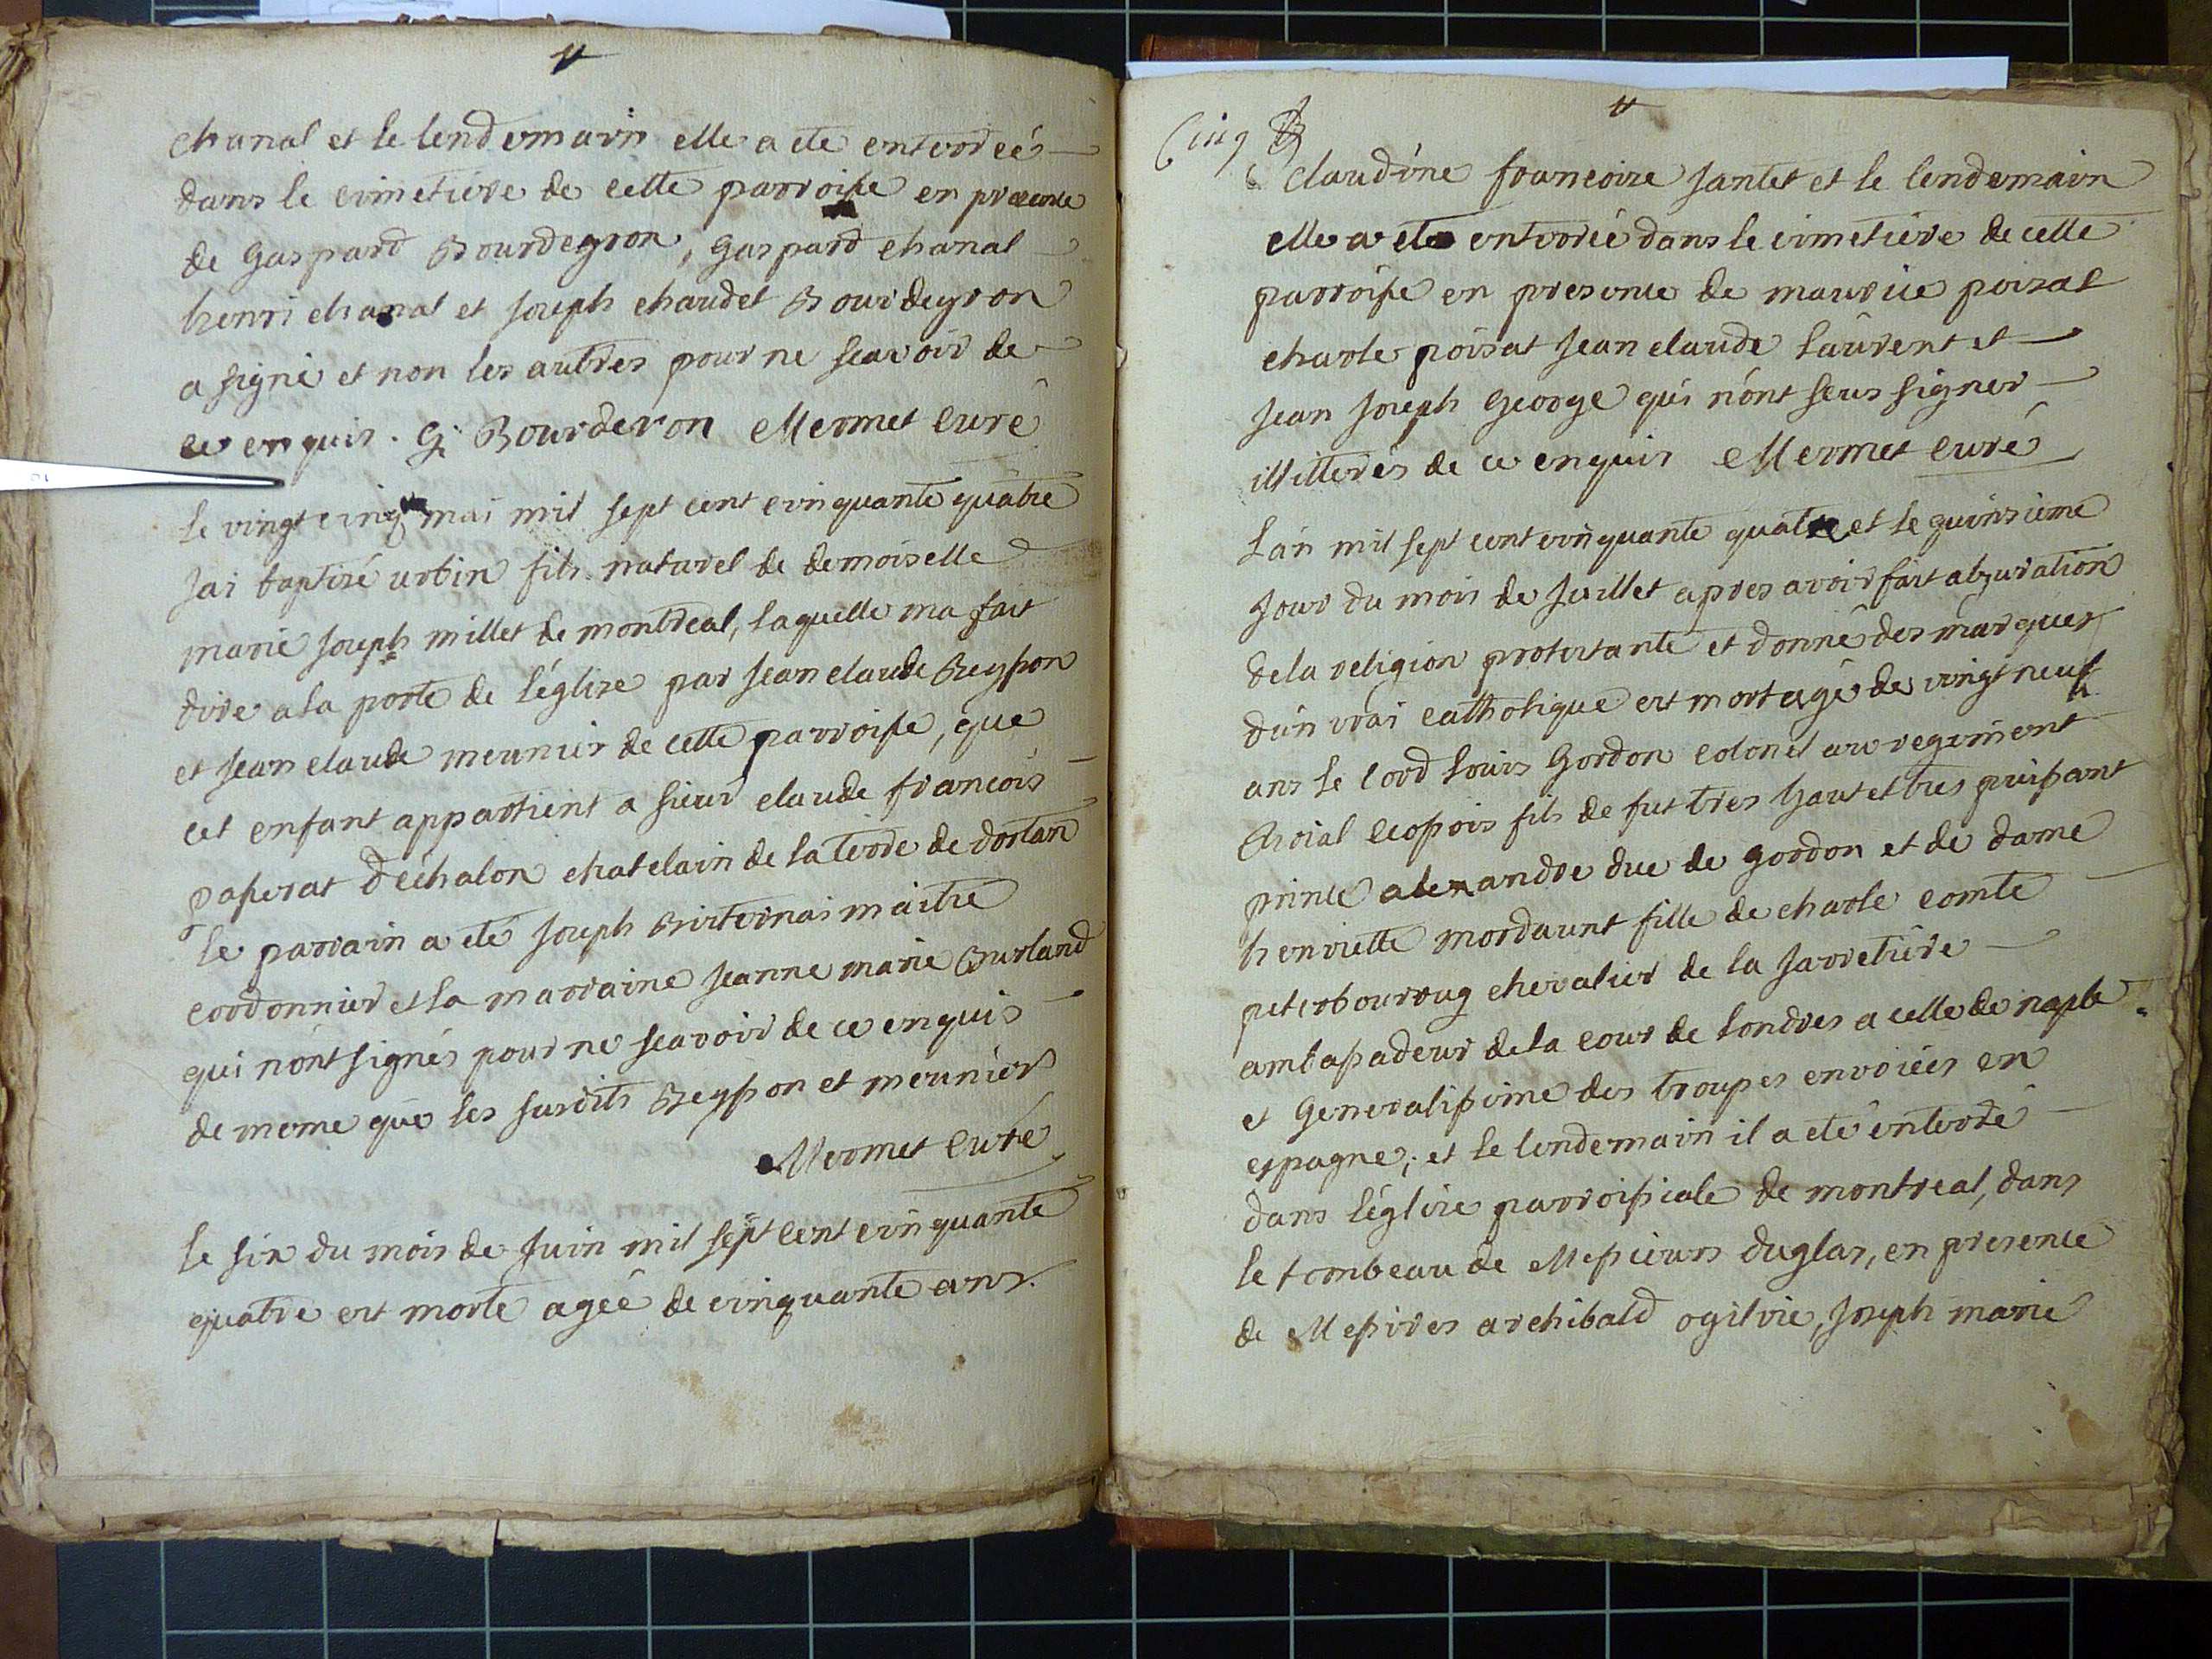 chanal et le lendemain elle a ete enterreé
dans le cimetiére de cette parroisse en presence
de Gaspard Bourdegron, Gaspard chanal
henri chanal et Joseph chaudet Bourdegron
a signé et non les autres pour ne scavoir de
ce enquis. G: Bourderon Mermet Curé
le vingt cinq mai mil sept cent cinquante quatre
Jai baptisé urbin fils naturel de demoiselle
marie Joseph millet de montreal, laquelle ma fait
dire a la porte de l'église par Jean claude Beysson
et Jean claude meunier de cette parroisse, que
cet enfant appartient a sieur claude francois
passerat d'échalon chatelain de la terre de dortan
le parrain a eté Joseph Bisternai maitre
cordonnier et la marraine Jeanne marie Burland
qui n'ont signés pour ne scavoir de ce enquis
de meme que les susdits Beysson et meunier
Mermet Curé
le six du mois de Juin mil sept cent cinquante
quatre est morte ageé de cinquante ans.
Cinq
claudine francoise Jantet et le lendemain
elle a ete enterrée dans le cimetiére de cette
parroisse en presence de maurice poisat
charle poisat Jean claude laurent et
Jean Joseph George qui n'ont seus signer
illitterés de ce enquis Mermet Curé
L'an mil sept cent cinquante quatre et le quinzieme
Jour du mois de Juillet apres avoir fait abjuration
de la religion protestante et donné des marques
d'un vrai catholique est mort agé de vingt neuf
ans le lord louis Gordon colonel au regiment
Roial ecossois fils de fut tres haut et tres puissant
prince alexandre duc de gordon et de dame
henriette mordaunt fille de charle comte
peterbouroug chevalier de la Jarretiére
ambassadeur de la cour de londres a celle de naple
et Generalissime des troupes envoiées en
espagne; et le lendemain il a eté enterré
dans l'église parroissiale de montreal, dans
le tombeau de Messieurs duglas, en presence
de Messires archibald ogilvie, Joseph marie